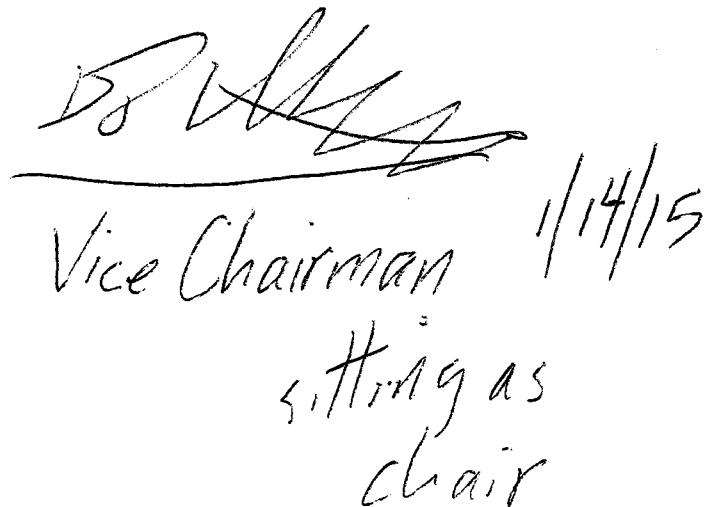 Vice Chairman 1/14/15
sitting as
chair